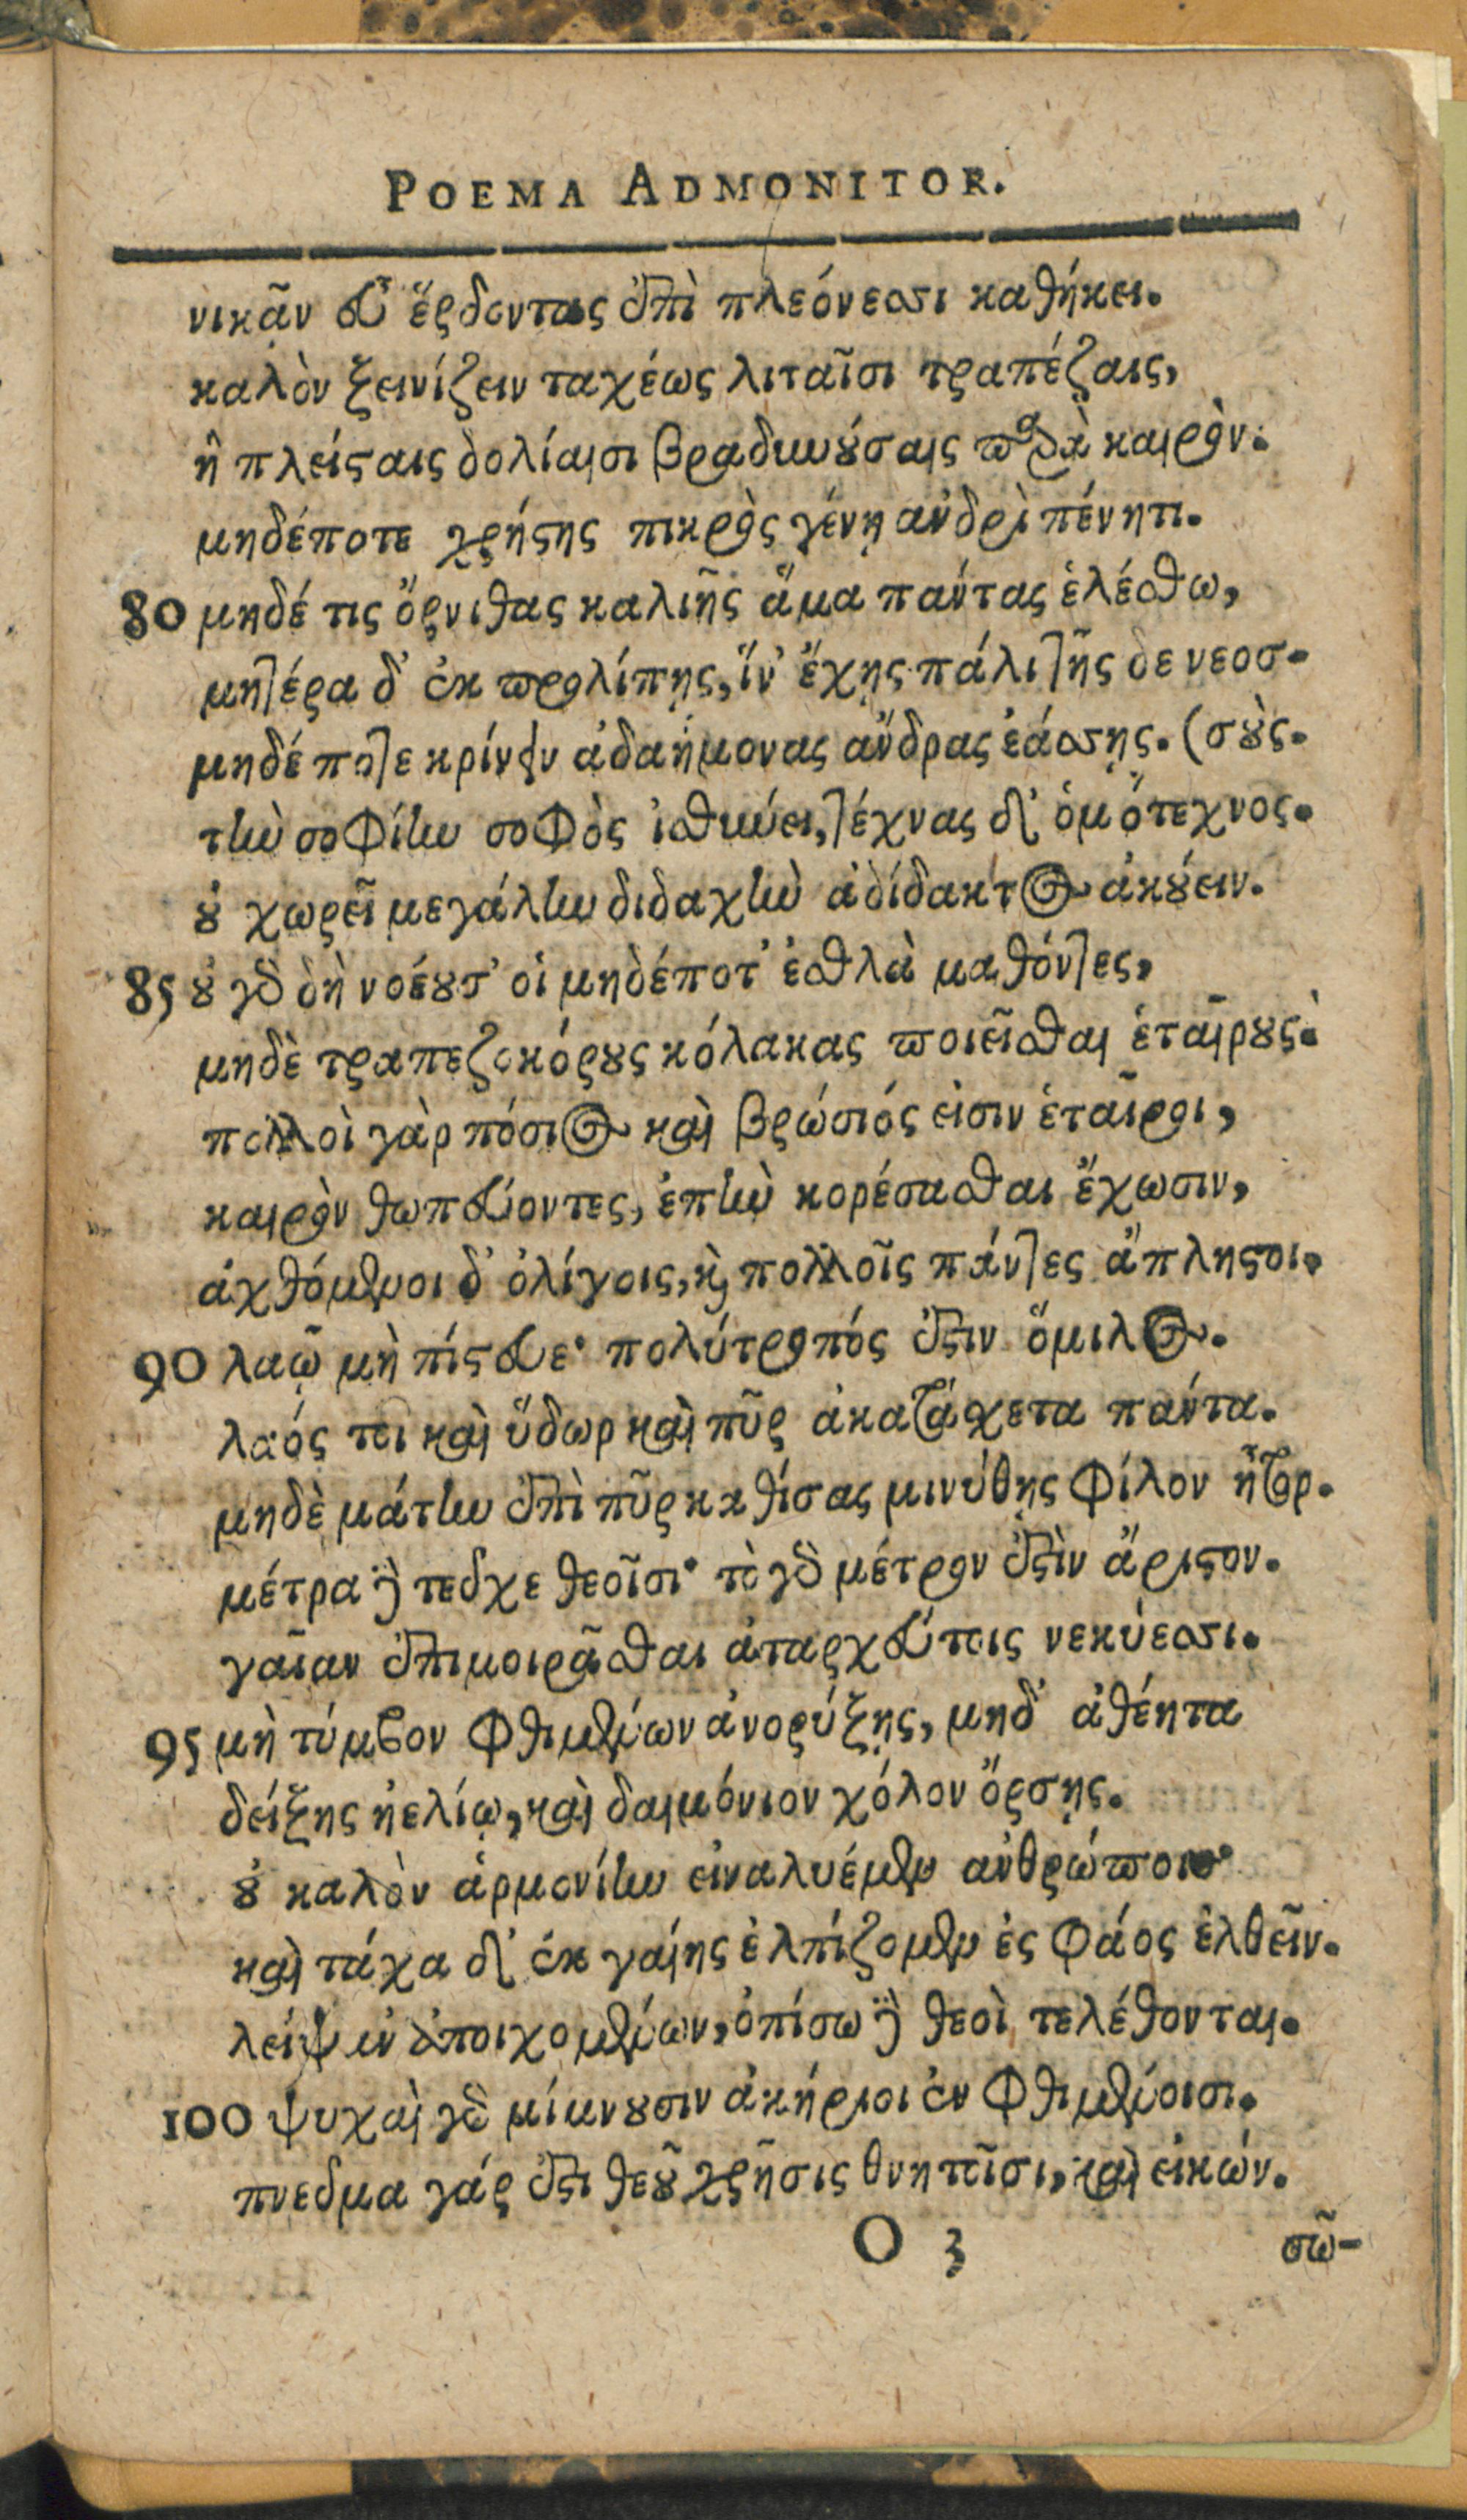 POEMA ADMONITOR.
νικᾶν εὖ ἔρδοντας ἐπὶ πλεόνεσσι καθήκει.
καλὸν ξεινίζειν ταχέως λιταῖσι τραπέζαις,
ἢ πλείσταις δολίαισι βραδυνούσαις παρὰ καιρὸν.
μηδέποτε χρήστης πικρὸς γένῃ ἀνδρὶ πένητι.
80 μηδέ τις ὄρνιθας καλιῆς ἅμα πάντας ἑλέσθω,
μητέρα δ' ἐκ προλίπῃς, ἵν' ἔχῃς πάλι τῆς δε νεοσ-
μηδέ ποτε κρίνειν ἀδαήμονας ἄνδρας ἐάσσῃς. (σούς.
τὴν σοφίην σοφὸς ἰθύνει, τέχνας δ' ὁμότεχνος.
οὐ χωρεῖ μεγάλην διδαχὴν ἀδίδακτος ἀκούειν.
85 οὐ γὰρ δὴ νοέουσ' οἱ μηδέποτ' ἐσθλὰ μαθόντες,
μηδὲ τραπεζοκόρους κόλακας ποιεῖσθαι ἑταίρους.
πολλοὶ γὰρ πόσιος καὶ βρώσιός εἰσιν ἑταῖροι,
καιρὸν θωπεύοντες, ἐπὴν κορέσασθαι ἔχωσιν,
ἀχθόμενοι δ' ὀλίγοις, καὶ πολλοῖς πάντες ἄπληστοι,
90 λαῷ μὴ πίστευε· πολύτροπός ἐστιν ὅμιλος.
λαός τοι καὶ ὕδωρ καὶ πῦρ ἀκατάσχετα πάντα.
μηδὲ μάτην ἐπὶ πῦρ καθίσας μινύθῃς φίλον ἦτορ.
μέτρα δὲ τεῦχε θεοῖσι· τὸ γὰρ μέτρον ἐστὶν ἄριστον.
γαῖαν ἐπιμοιρᾶσθαι ἀταρχεύτοις νεκύεσσι.
95 μὴ τύμβον φθιμένων ἀνορύξῃς, μηδ' ἀθέητα
δείξῃς ἠελίῳ, καὶ δαιμόνιον χόλον ὄρσῃς.
οὐ καλὸν ἁρμονίην ἀναλυέμεν ἀνθρώποιο
καὶ τάχα δ' ἐκ γαίης ἐλπίζομεν ἐς φάος ἐλθεῖν.
λείψαν ἀποιχομένων, ὀπίσω δὲ θεοὶ τελέθονται.
100 ψυχαὶ γὰρ μίμνουσιν ἀκήριοι ἐν φθιμένοισι.
πνεῦμα γάρ ἐστι θεοῦ χρῆσις θνητοῖσι, καὶ εἰκών.
O 3 σῶ-